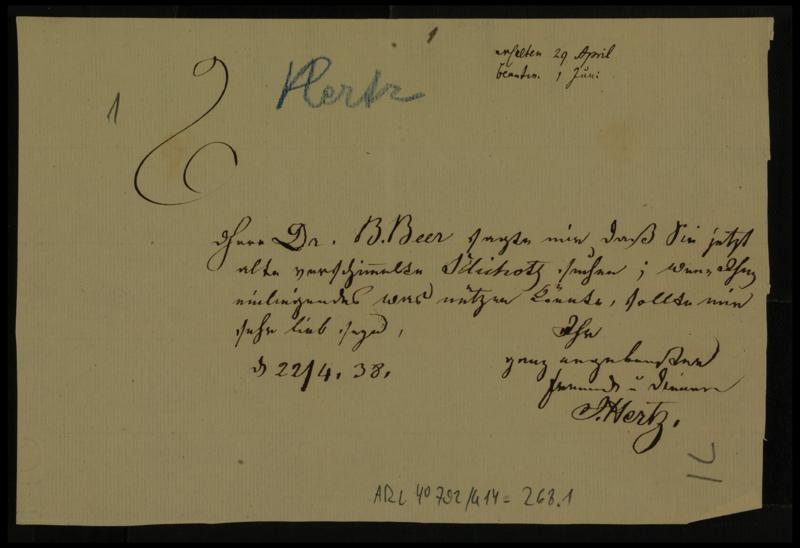 1
Hertz
erhalten 29 April
beantw. 1 Juni
1
Herr Dr. B. Beer sagte mir daß Sie jetzt
alte verschimmelte Slichoth suchen; wenn Ihnen
einliegendes was nützen könnte, sollte mir
sehr lieb seyn,
Ihr
d 22/4. 38.
ganz ergebenster
Freund u Diener
J. Hertz.
ARC 4º 792/G14=268.1